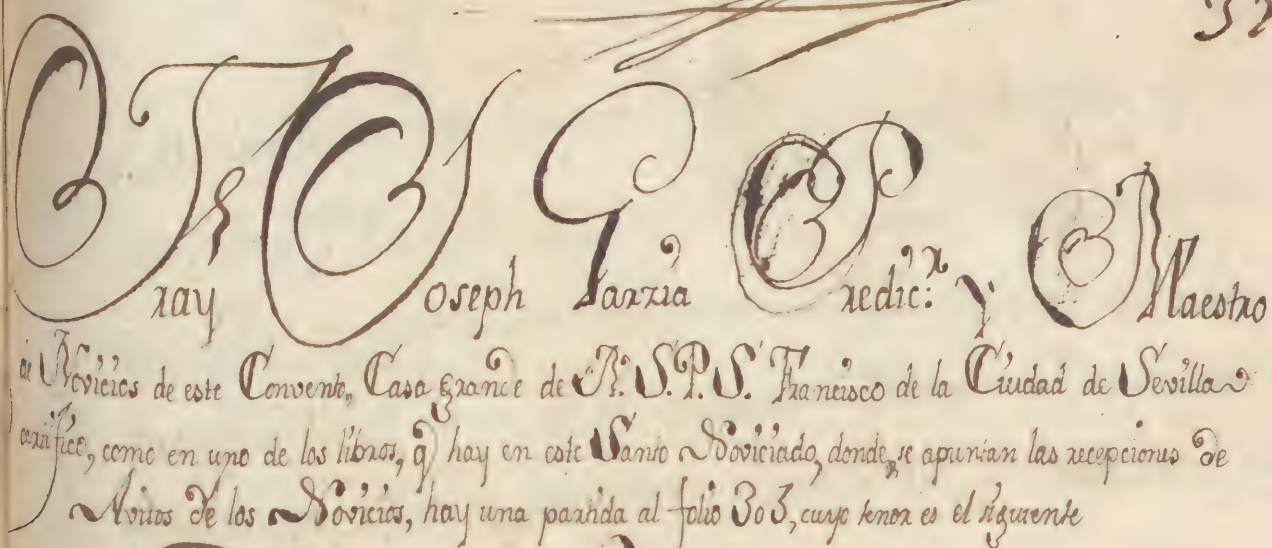 Fray Joseph Garzia Predic.ʳ y Maestro
de Novicios de este Convento, Casa grande de N. S. P. S. Francisco de la Ciudad de Sevilla
certifico, como en uno de los libros, q̃ hay en este Santo Noviciado, donde se apuntan las recepciones de
Avitos de los Novicios, hay una partida al folio 303, cuyo tenor es el siguiente